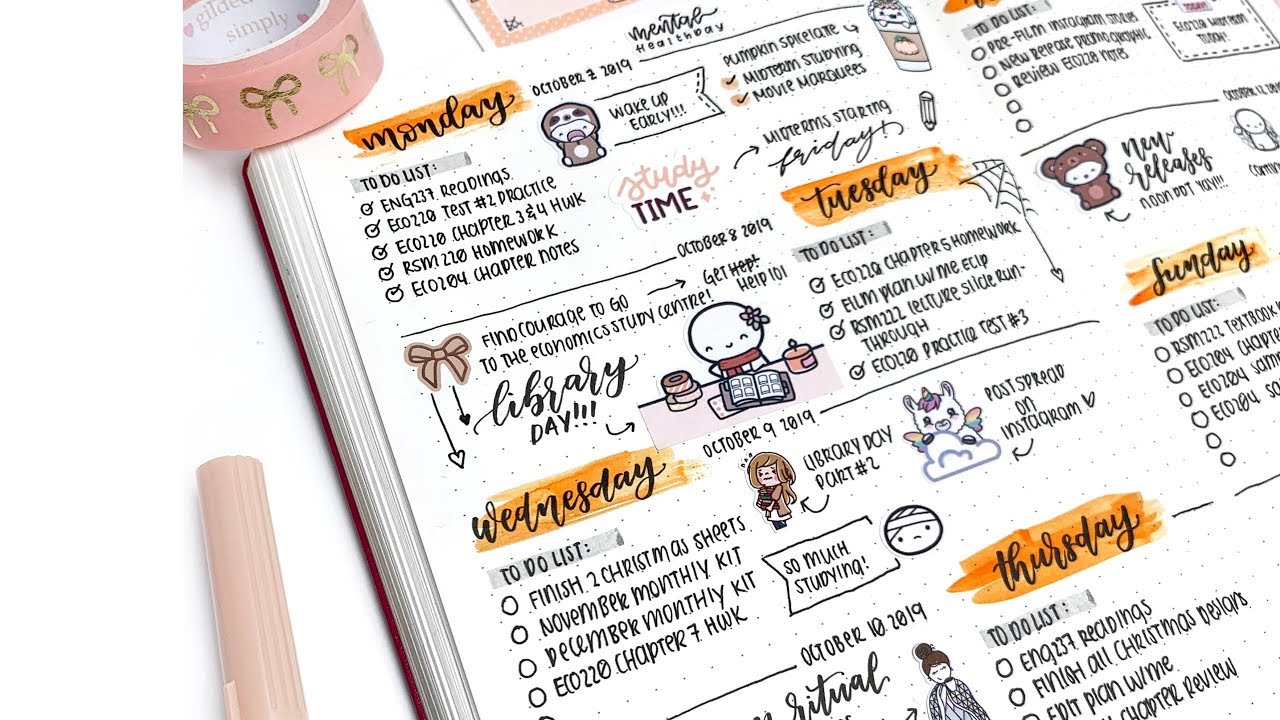 gilded
simply
mental
healthday
OCTOBER 7, 2019
monday
WAKE UP
EARLY!!!
PUMPKIN SPICE LATE
MIDTERM STUDYING
MOVIE MARQUEES
MIDTERMS STARTING
friday!
study
TIME
TO DO LIST:
ENG237 READINGS
ECO220 TEST #2 PRACTICE
ECO220 CHAPTER 3 & 4 HWK
RSM220 HOMEWORK
ECO204 CHAPTER NOTES
OCTOBER 8 2019
tuesday
TO DO LIST:
ECO220 CHAPTER 5 HOMEWORK
FILM PLAN W/ ME ECLP
RSM222 LECTURE SLIDE RUN-
THROUGH
ECO220 PRACTICE TEST #3
FIND COURAGE TO GO
TO THE ECONOMICS STUDY CENTRE!
GET HEP!
HELP 101
library
DAY!!!
OCTOBER 9 2019
wednesday
LIBRARY DAY
PART #2
POST SPREAD
ON
INSTAGRAM
TO DO LIST:
FINISH 2 CHRISTMAS SHEETS
NOVEMBER MONTHLY KIT
DECEMBER MONTHLY KIT
ECO220 CHAPTER 7 HWK
SO MUCH
STUDYING!
OCTOBER 10 2019
thursday
TO DO LIST:
ENG237 READINGS
FINISH ALL CHRISTMAS DESIGNS
EDIT PLAN W/ME
CHAPTER REVIEW
ritual
TO DO LIST:
PRE-FILM INSTAGRAM STORIES
NEW RELEASE PROMO GRAPHIC
REVIEW ECO220 NOTES
TODAY!
ECO220 MIDTERM
TODAY!
OCTOBER 12, 201
new
releases
sunday
TO DO LIST:
RSM222 TEXTBOOK
ECO204 CHAPTER
ECO204
ECO204